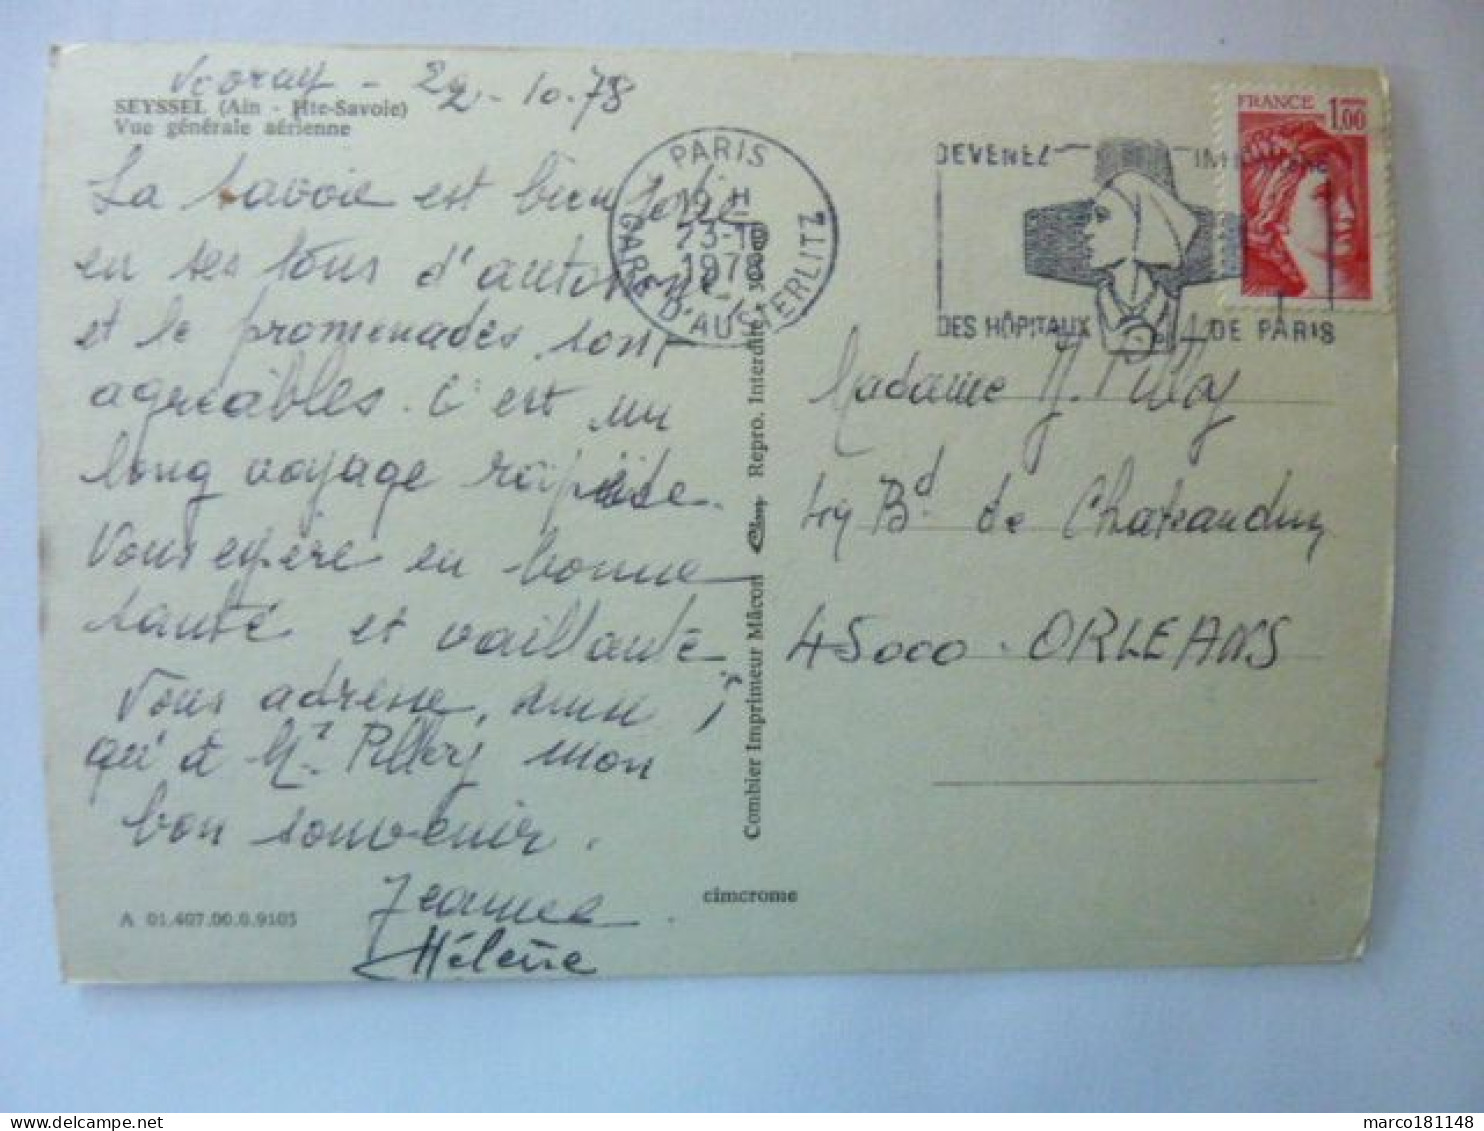 22-10-78
SEYSSEL (Ain - Hte-Savoie)
Vue générale aérienne
La Savoie est bien jolie
en ses tons d'automne
et le promenades sont
agréables. C'est un
long voyage rapide.
Vous espère en bonne
santé et vaillante
Vous adresse, ainsi
qu'à Mr. Pilloy mon
bon souvenir.
Jeanne
Hélène
A 01.407.00.0.9105
cimcrome
Combier Imprimeur Mâcon Repro. Interdite
PARIS
19 H
23-10
1978
GARE D'AUSTERLITZ
DEVENEZ INFIRMIERE
DES HÔPITAUX DE PARIS
FRANCE 1,00
Madame M. Pilloy
49 Bd. de Chateaudun
45000 - ORLEANS
marco181148